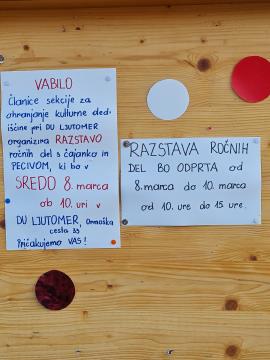 VABILO
Članice sekcije za
ohranjanje kulturne ded-
iščine pri DU LJUTOMER
organizira RAZSTAVO
ročnih del s čajanko in
PECIVOM, ki bo v
SREDO 8. marca
ob 10. uri v
DU LJUTOMER, Ormoška
cesta
Pričakujemo VAS!
RAZSTAVA ROČNIH
DEL BO ODPRTA od
8. marca do 10. marca
od 10. ure do 15 ure.